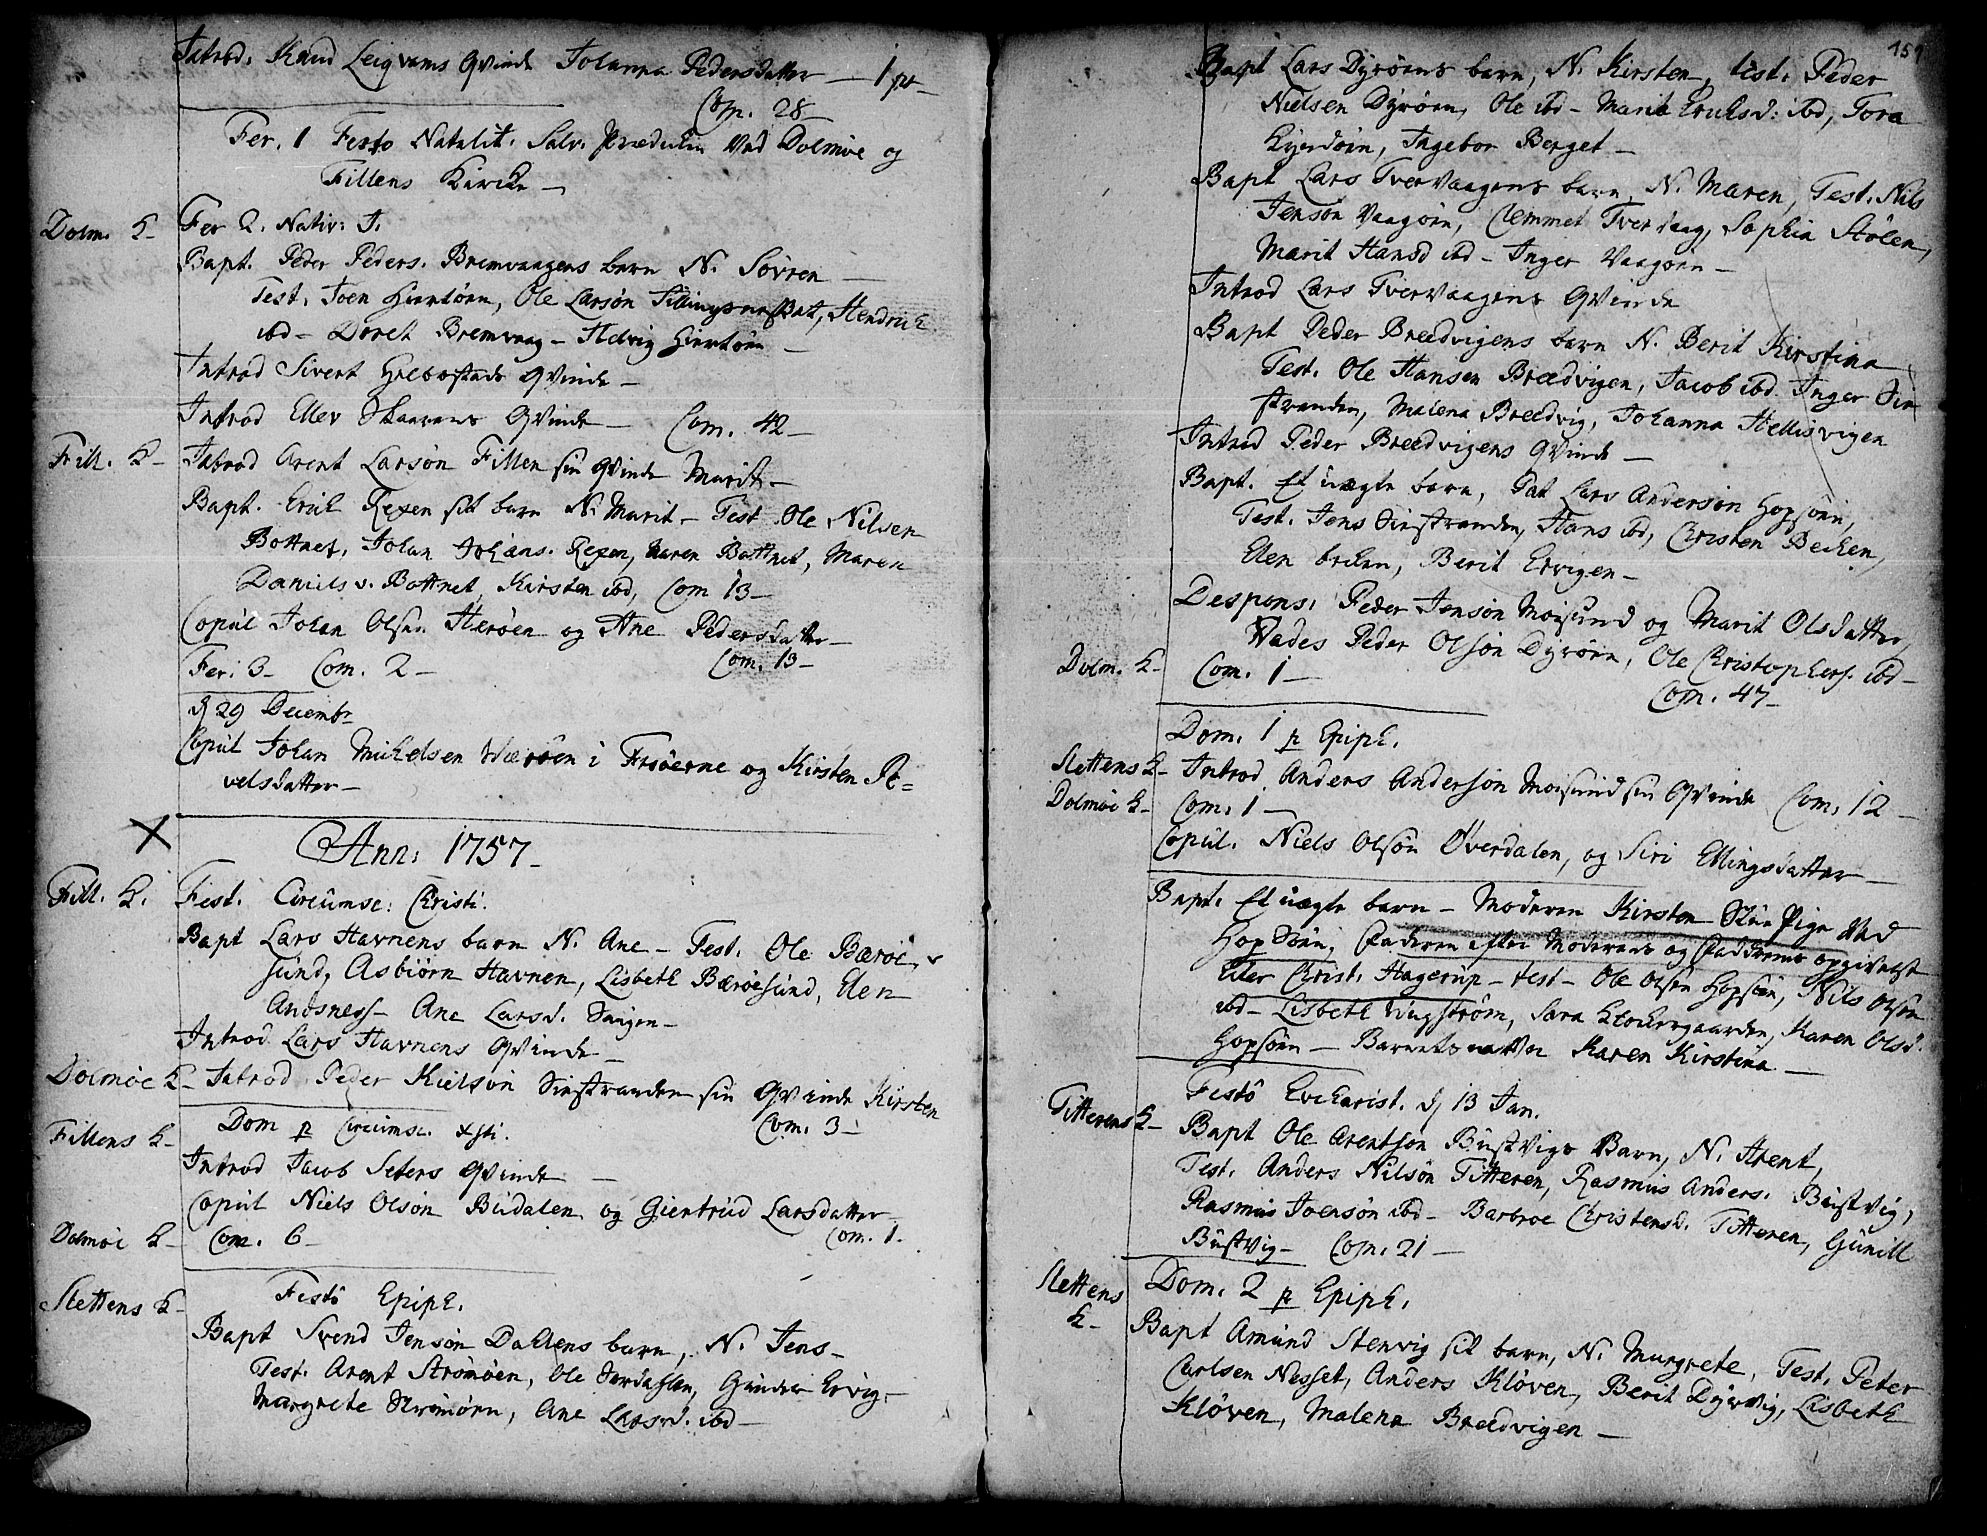 Introd. Knud Leigvams Qvinde Johanna Pedersdatter — 1 pr —
Com. 28 —
Fer. 1 Festo Natalit. Salv. Prædicken Ved Dolmøe og
Fillens Kircke —
Dolm. K — Fer 2. Nativ: J.
Bapt. Peder Peders. Bremvaagens barn N. Søvren —
Test. Joen Hiertøen, Ole Larsøn, Hendrich
ibd — Doret Bremvaag — Helvig Hiertøen —
Introd Sivert Grebestads Qvinde —
Introd Ellev Skaarens Qvinde — Com. 42 —
Fill. K — Introd Arent Larsøn Fillen sin Qvinde Marit —
Bapt. Erich Rexen sit barn N. Marit — Test. Ole Nilsen
Bottnet, Johan Johans. Rexen, Maren Bottnet, Maren
Daniels d. Bottnet, Kirsten ibd, Com 13 —
Copul Johan Olsen Herøen og Ane Pedersdatter —
Fer. 3 — Com. 2 — Com. 13 —
d 29 Decembr
Copul Johan Michelsen Værøen i Frøerne og Kirsten Pe=
velsdatter —
X Ann: 1757 —
Fill. K. Fest. Circumsc: Christi.
Bapt Lars Havnens barn N. Ane — Test. Ole Bærøe
sund, Asbiørn Havnen, Lisbeth Bærøesund, Elen
Andsness — Ane Larsd. Svigen —
Introd Lars Havnens Qvinde —
Dolmøe K — Introd Peder Kielsøn Sinstranden sin Qvinde Kirsten
Dom p Circumsc. Xsti. Com. 3 —
Fillens K — Introd Jacob Seters Qvinde —
Copul Niels Olsøn Budalen og Giertrud Larsdatter —
Dolmøe K — Com. 6 — Com. 1.
Festo Epiph.
Slettens K — Bapt Svend Jensøn Dallens barn, N. Jens —
Test. Arent Strømøen, Ole Sordahlen, Gunder Ervig,
Margrete Strømøen, Ane Larsd. ibd —
159
Bapt Lars Dyrøens barn, N. Kirsten, test. Peder
Nielsen Dyrøen, Ole ibd — Marit Erichsd: ibd, Tora
Ingebor Berget —
Bapt Lars Tvervaagens barn N. Maren, Test. Nils
Jensøn Vaagøen, Clemmet Tvervaag, Sophia Stølen,
Marit Hansd ibd — Inger Vaagøen —
Introd Lars Tvervaagens Qvinde
Bapt Peder Breedvigens barn N. Berit Kirstina
Test. Ole Hansen Breedvigen, Jacob ibd. Inger Sin
stranden, Malena Breedvig, Johanna Hellisvigen
Introd Peder Breedvigens Qvinde —
Bapt. Et uægte barn, Pat Lars Andersøn Hopsøen,
Test. Jens Sinstranden, Hans ibd, Christen Becken,
Elen Becken, Berit Ervigen —
Despons. Peder Jensøn Moesund og Marit Olsdatter,
Vades Peder Olsøn Dyrøen, Ole Christophers. ibd —
Dolm. K — Com. 1 — Com. 47 —
Dom. 1 p Epiph.
Slettens K — Introd. Anders Andersøn Moesund sin Qvinde Com. 12 —
Dolmøe K — Com. 1 —
Copul. Niels Olsøn Øverdalen, og Siri Ellingsdatter —
Bapt. Et uægte barn — Moderen Kirsten Pige Ved
Hopsøen, Faderen efter Moderens og Faddernes opgivelse
Eiler Christ. Hagerup — test — Ole Olsen Hopsøen, Nils Olsøn
ibd — Lisbeth Vingstrøm, Sara Klockergaarden, Karen Olsd.
Hopsøen — Barnets Karen Kirstina —
Festo Evcharist. d 13 Jan.
Titterens K — Bapt Ole Arentsøn Bustvigs Barn, N. Arent,
Test. Anders Nilsøn Titteren, Rasmus Anders. Bustvig,
Rasmus Joensøn ibd — Barbroe Christensd. Titteren, Gunill
Bustvig — Com. 21 —
Slettens Dom. 2 p Epiph.
K — Bapt Amund Stenvig sit barn, N. Margrete, Test. Peter
Carlsen Nesset, Anders Kløven, Berit Dyrvig, Lisbeth
Kløven, Malena Breedvigen —